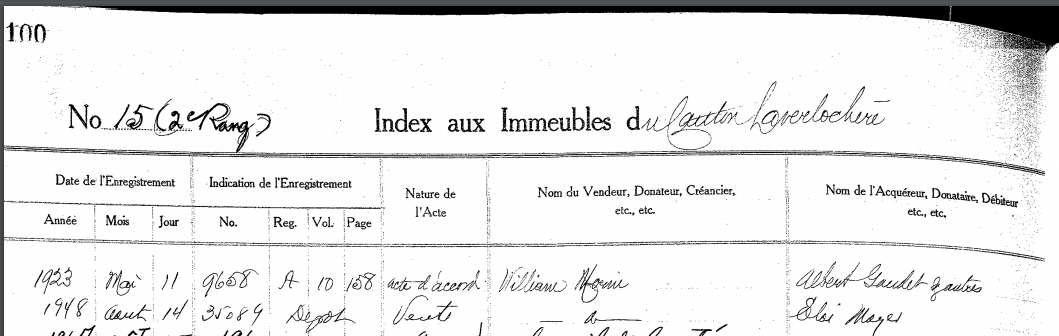 100
No 15 (2e Rang) Index aux Immeubles du Canton Laverlochère
Date de l'Enregistrement Indication de l'Enregistrement Nature de l'Acte Nom du Vendeur, Donateur, Créancier, etc., etc. Nom de l'Acquéreur, Donataire, Débiteur etc., etc.
Année Mois Jour No. Reg. Vol. Page
1923 Mai 11 9658 A 10 158 acte d'accord William Morin Albert Gaudet & autres
1948 Aout 14 35089 Dépot Vente Eloi Mayer